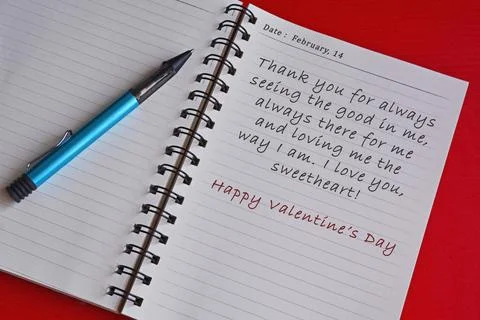 Date : February, 14
Thank you for always
seeing the good in me,
always there for me
and loving me the
way I am. I love you,
sweetheart!
Happy Valentine's Day